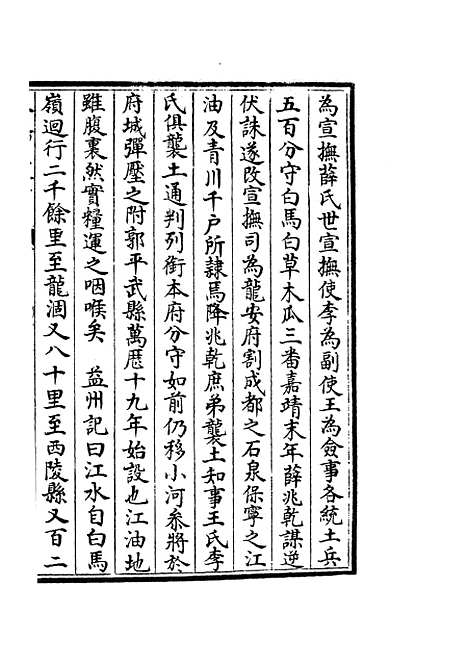 為宣撫薛氏世宣撫使李為副使王為僉事各統土兵
五百分守白馬白草木瓜三番嘉靖末年薛兆乾謀逆
伏誅遂改宣撫司為龍安府割成都之石泉保寧之江
油及青川千戶所隸焉降兆乾庶弟襲土知事王氏李
氏俱襲土通判列銜本府分守如前仍移小河叅將於
府城彈壓之附郭平武縣萬歷十九年始設也江油地
雖腹裏然實糧運之咽喉矣 益州記曰江水自白馬
嶺迴行二千餘里至龍涸又八十里至西陵縣又百二